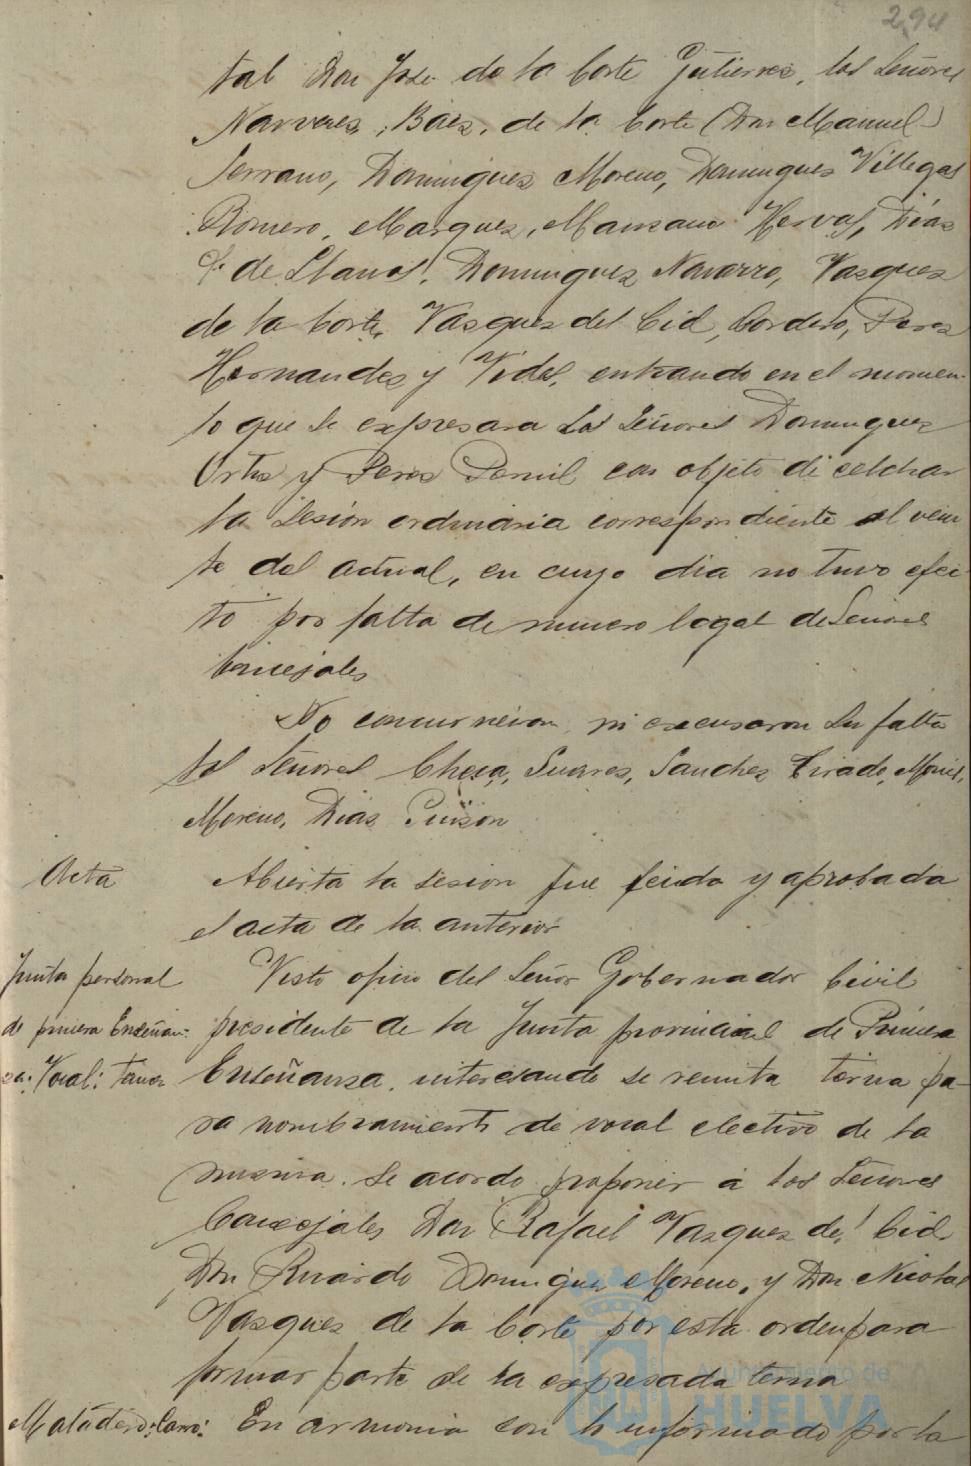 294
tal Don José de la Corte Gutierrez, los Señores
Narvaez, Báez, de la Corte (Don Manuel)
Serrano, Dominguez Moreno, Dominguez Villegas
Romero, Marquez, Manzano Hervas, Días
de Llanos, Dominguez Navarro, Vasquez
de la Corte, Vasquez del Cid, Cordero, Perez
Hernandez y Vides, entrando en el momen-
to que se expresara los Señores Dominguez
Ortiz y Perez Pernil con objeto de celebrar
la sesión ordinaria correspondiente al vein
te del actual, en cuyo dia no tuvo efec-
to por falta de numero legal de Señores
Concejales
No concurrieron, ni excusaron su falta
los Señores Checa, Suarez, Sanchez Tirado,
Moreno, Días Quison
Acta
Abierta la sesion fue leida y aprobada
el acta de la anterior
Junta personal
de primera Enseñan-
za: Vocal: terna
Visto oficio del Señor Gobernador Civil
presidente de la Junta provincial de Primera
Enseñanza, interesando se remita terna pa-
ra nombramiento de vocal electivo de la
misma, se acordo proponer á los Señores
Concejales Don Rafael Vasquez del Cid,
Don Ricardo Dominguez Moreno, y Don Nicolas
Vasquez de la Corte por esta orden para
formar parte de la expresada terna
Matadero: Carro:
En armonia con lo informado por la
Ayuntamiento de
HUELVA